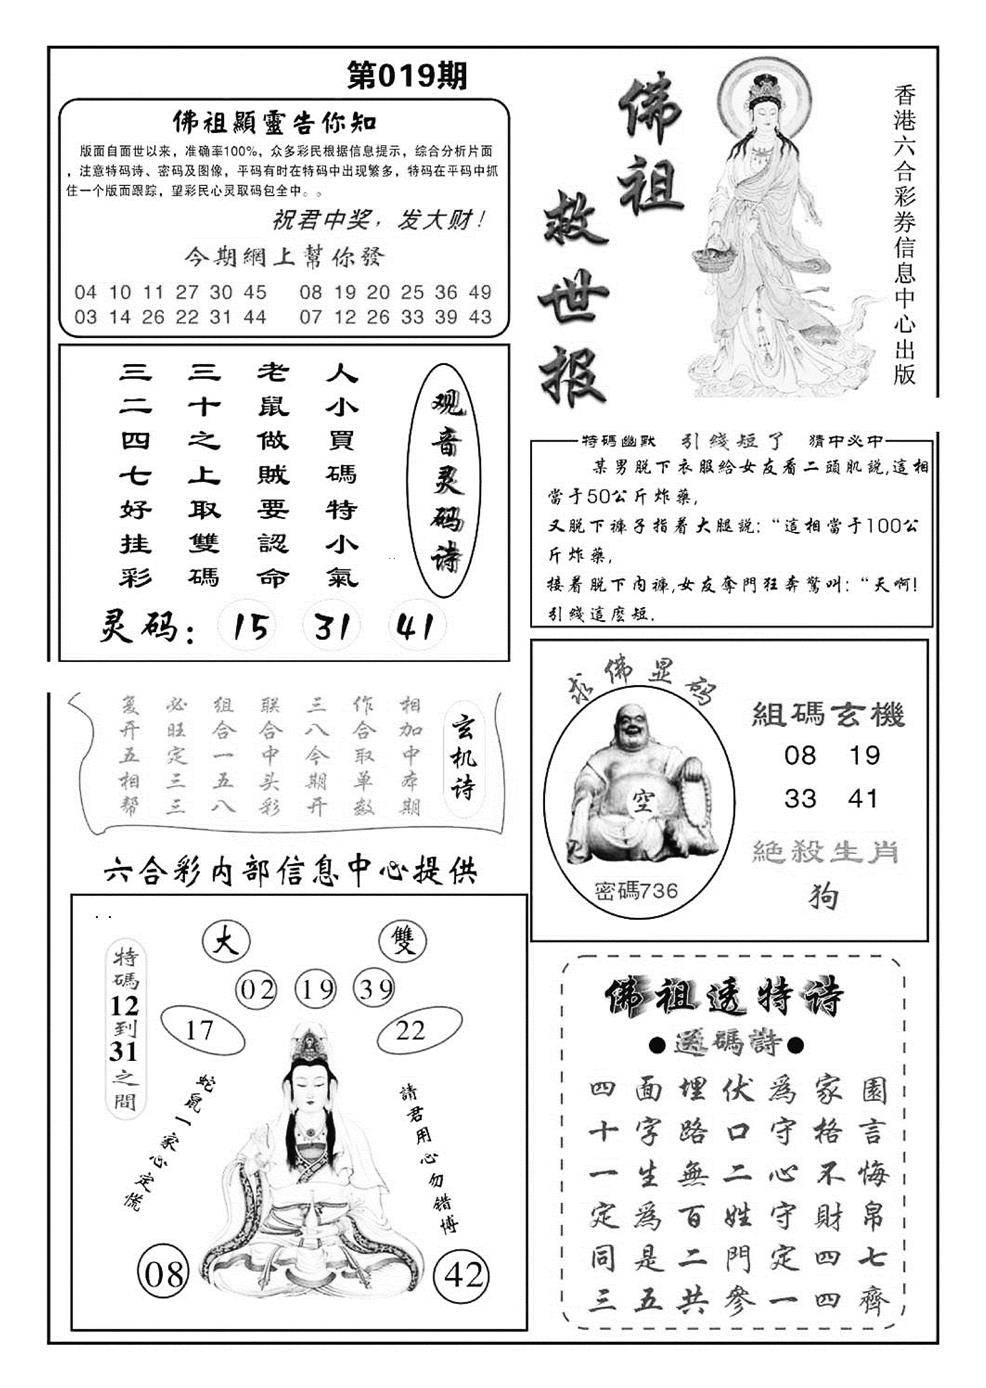 第019期
佛祖顯靈告你知
版面自面世以来，准确率100%，众多彩民根据信息提示，综合分析片面
，注意特码诗、密码及图像，平码有时在特码中出现繁多，特码在平码中抓
住一个版面跟踪，望彩民心灵取码包全中。。
祝君中奖，发大财！
今期網上幫你發
04 10 11 27 30 45 08 19 20 25 36 49
03 14 26 22 31 44 07 12 26 33 39 43
佛祖
救世报
香港六合彩券信息中心出版
观音灵码诗
人小買碼特小氣
老鼠做賊要認命
三十之上取雙碼
三二四七好挂彩
灵码：15 31 41
特碼幽默 引綫短了 猜中必中
某男脱下衣服給女友看二頭肌説,這相
當于50公斤炸藥,
又脱下褲子指着大腿説:“這相當于100公
斤炸藥,
接着脱下内褲,女友奪門狂奔驚叫:“天啊!
引綫這麽短.
玄机诗
相加中本期
作合取单数
三八今期开
联合中头彩
组合一五八
必旺定三三
复开五相帮
求佛显码
空
密碼736
組碼玄機
08 19
33 41
絕殺生肖
狗
六合彩内部信息中心提供
特碼12到31之間
大 雙
02 19 39
17 22
蛇鼠一家心定慌
請君用心勿错博
08 42
佛祖透特诗
●透碼詩●
四面埋伏為家園
十字路口守格言
一生無二心不悔
定為百姓守財帛
同是二門定四七
三五共參一四齊